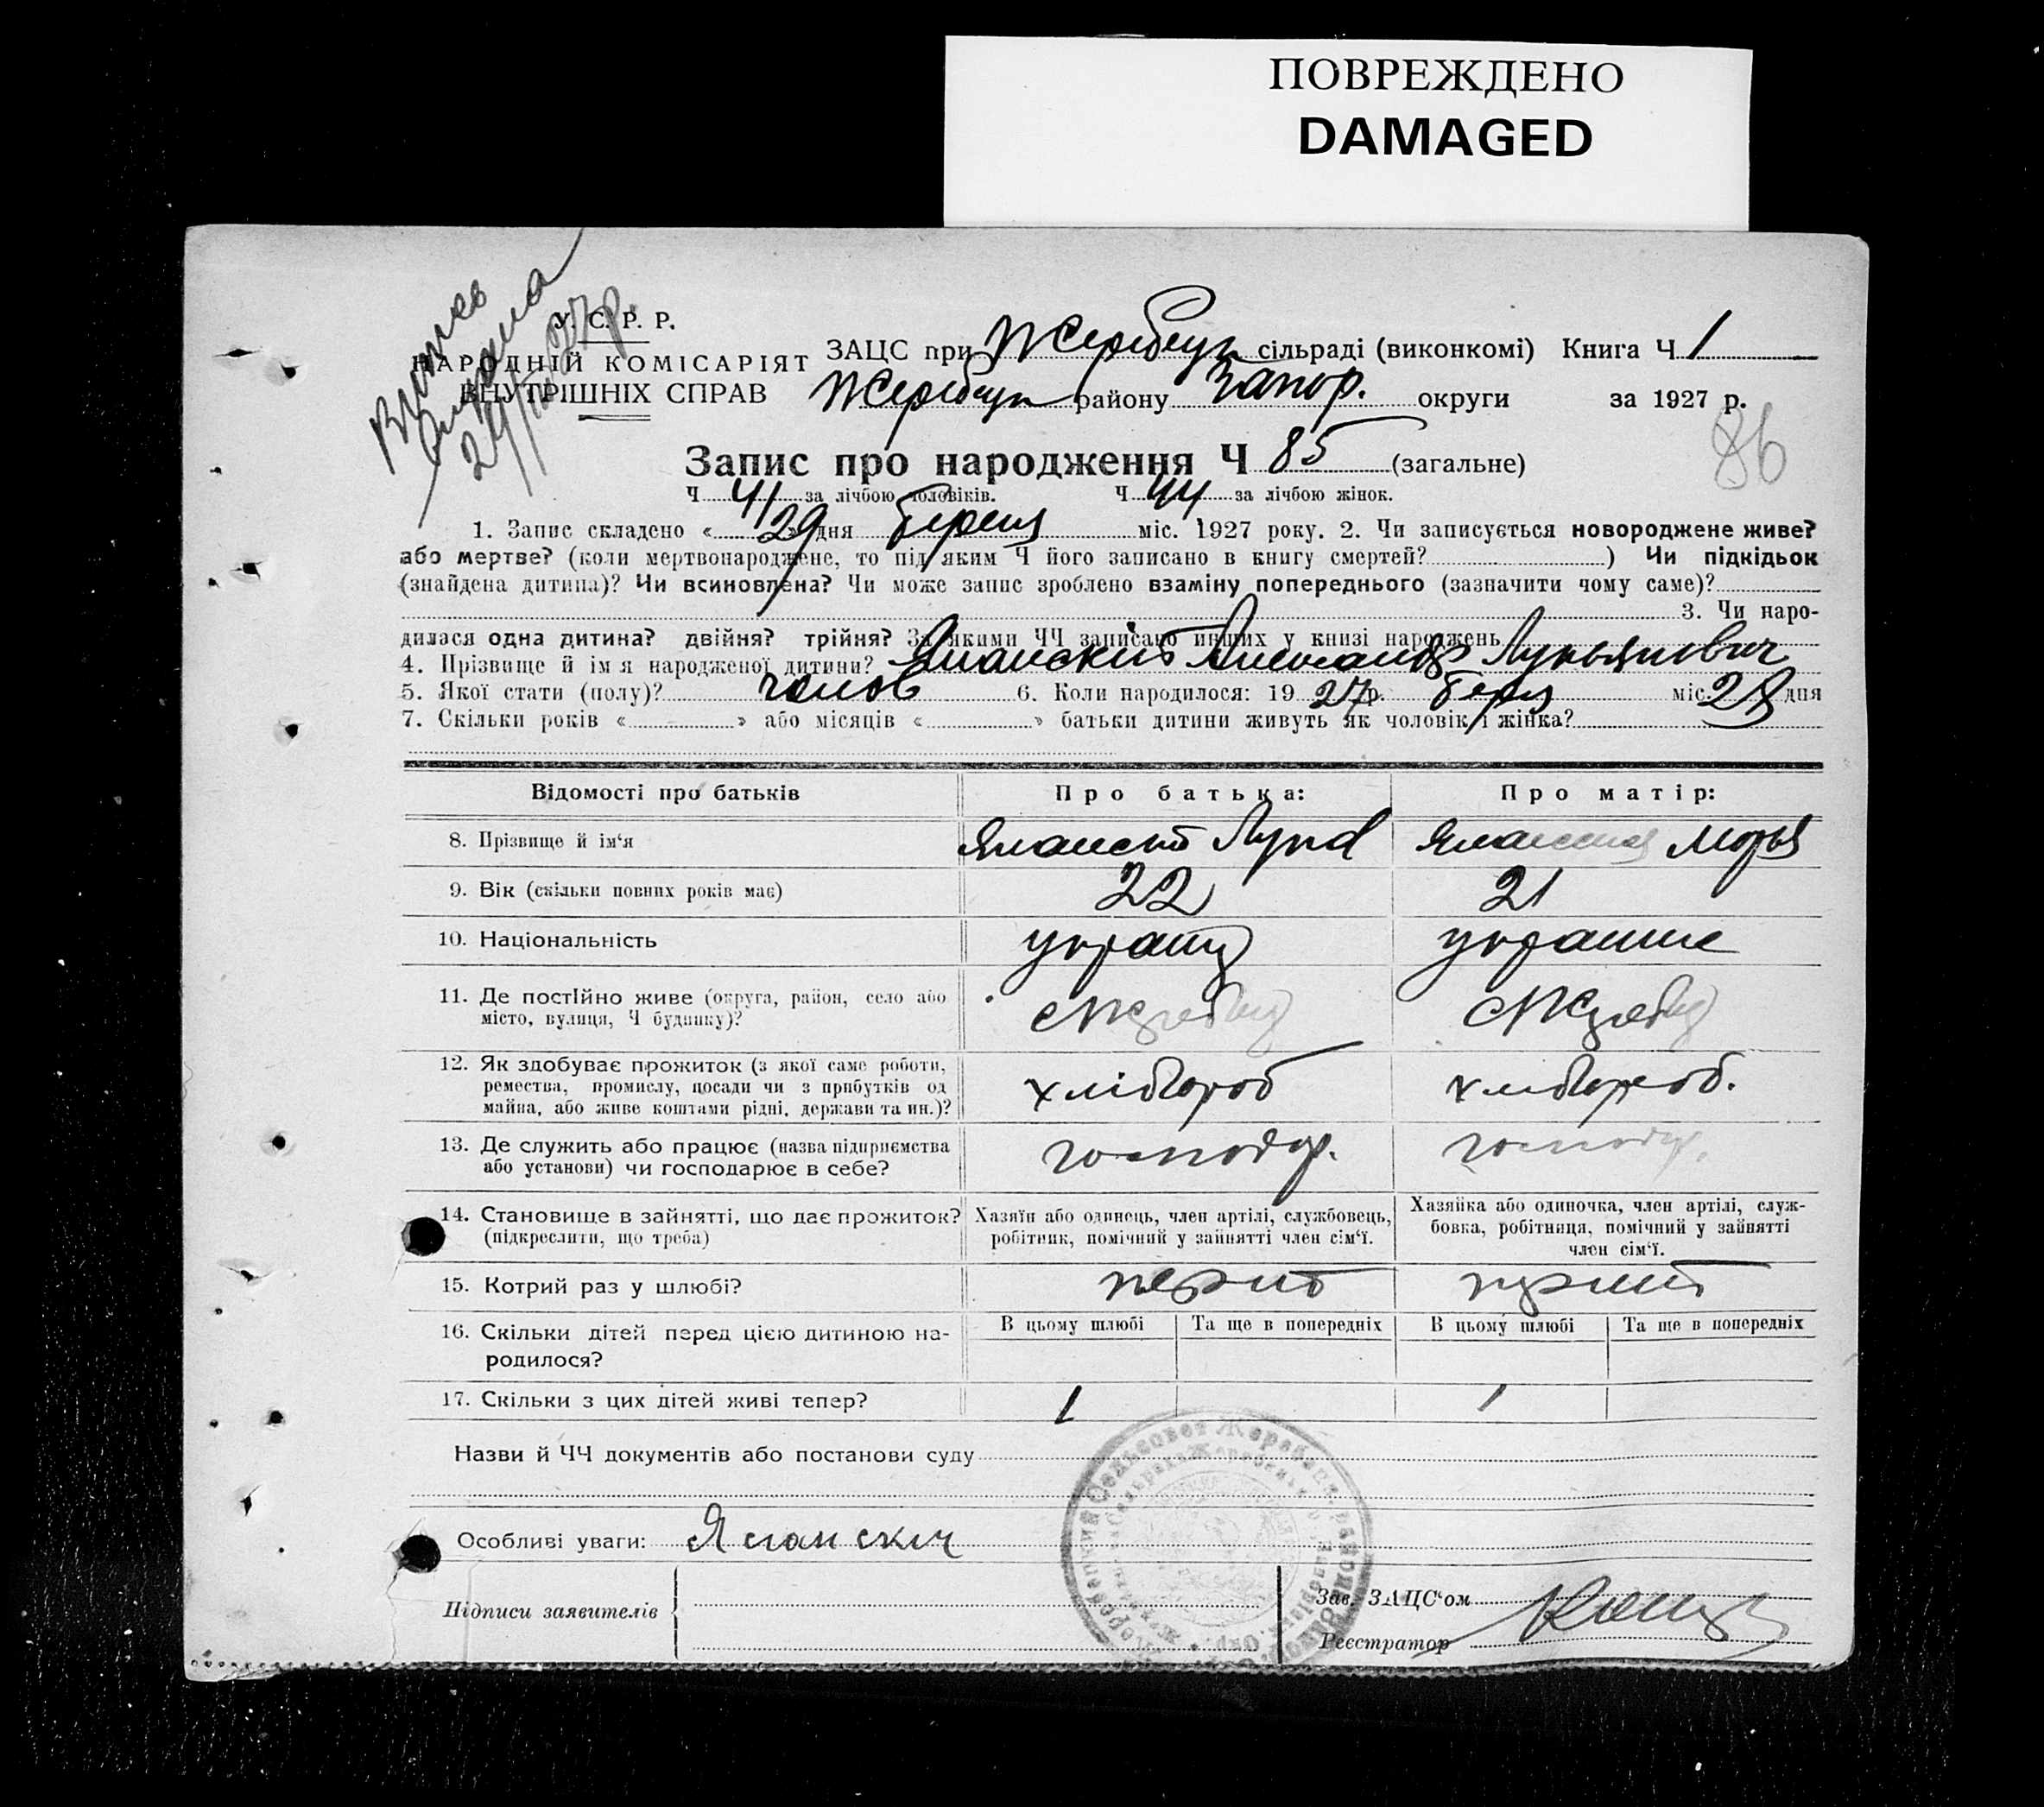 ПОВРЕЖДЕНО
DAMAGED
У. С. Р. Р.
НАРОДНІЙ КОМІСАРІЯТ
ВНУТРІШНІХ СПРАВ
ЗАЦС при Жеребец сільраді (виконкомі) Книга Ч 1
Жеребец району Запор. округи за 1927 р.
86
Запис про народження Ч 85 (загальне)
Ч 41 за лічбою чоловіків. Ч 44 за лічбою жінок.
1. Запис складено « 29 » дня міс. 1927 року. 2. Чи записується новороджене живе?
або мертве? (коли мертвонароджене, то під яким Ч його записано в книгу смертей? ) Чи підкідьок
(знайдена дитина)? Чи всиновлена? Чи може запис зроблено взаміну попереднього (зазначити чому саме)?
3. Чи наро-
дилася одна дитина? двійня? трійня? За якими ЧЧ записано инших у книзі народжень
4. Прізвище й ім я народженої дитини? Александр Лукьянович
5. Якої стати (полу)? чолов 6. Коли народилося: 19 27 р. міс. 28 дня
7. Скільки років « » або місяців « » батьки дитини живуть як чоловік і жінка?
Відомості про батьків Про батька: Про матір:
8. Прізвище й ім‘я
9. Вік (скільки повних років має) 22 21
10. Національність
11. Де постійно живе (округа, район, село або
місто, вулиця, Ч будинку)?
12. Як здобуває прожиток (з якої саме роботи,
ремества, промислу, посади чи з прибутків од
майна, або живе коштами рідні, держави та ин.)?
хлібороб хлібороб.
13. Де служить або працює (назва підприємства
або установи) чи господарює в себе?
господ. господ.
14. Становище в зайнятті, що дає прожиток?
(підкреслити, що треба)
Хазяїн або одинець, член артілі, службовець,
робітник, помічний у зайнятті член сім‘ї.
Хазяйка або одиночка, член артілі, служ-
бовка, робітниця, помічний у зайнятті
член сім‘ї.
15. Котрий раз у шлюбі?
16. Скільки дітей перед цією дитиною на-
родилося?
В цьому шлюбі Та ще в попередніх В цьому шлюбі Та ще в попередніх
17. Скільки з цих дітей живі тепер? 1 1
Назви й ЧЧ документів або постанови суду
Особливі уваги:
Підписи заявителів
Зав. ЗАЦС‘ом
Реєстратор